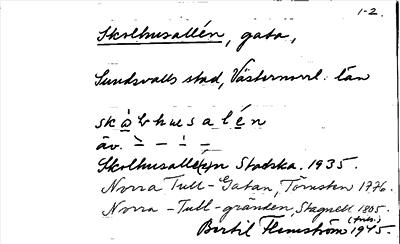 1-2.
Skolhusallén, gata,
Sundsvalls stad, Västernorrl. län
skòlhusalén
äv. – – –
Skolhusalle(e)n Stadska. 1935.
Norra Tull-Gatan, Törnsten 1776.
Norra-Tull-gränden, Stagnell 1805.
Bertil Flemström 1945